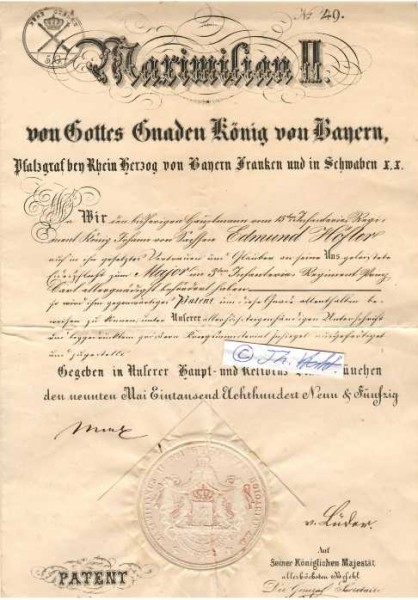 No. 49.
Maximilian II.
von Gottes Gnaden König von Bayern,
Pfalzgraf bey Rhein Herzog von Bayern Franken und in Schwaben x.x.
Da Wir den bisherigen Hauptmann vom 15ten Infanterie Regi-
ment König Johann von Sachsen Edmund Höfler
auf in ihn gesetztes Vertrauen und Glauben an seine Uns geleistete
zum Major im 3ten Infanterie Regiment Prinz
Carl allergnädigst befördert haben
so wird ihm gegenwärtiges Patent um diese Grade allenthalben be-
zu können, unter Unserer allerhöchsteigenhändigen Unterschrift
und ausgefertiget
und zugestellt.
Gegeben in Unserer Haupt- und Residenz München
den neunten Mai Eintausend Achthundert Neun & Fünfzig
Max
v. Lüder.
Auf
Seiner Königlichen Majestät
allerhöchsten Befehl
Der General Secretair
PATENT
©